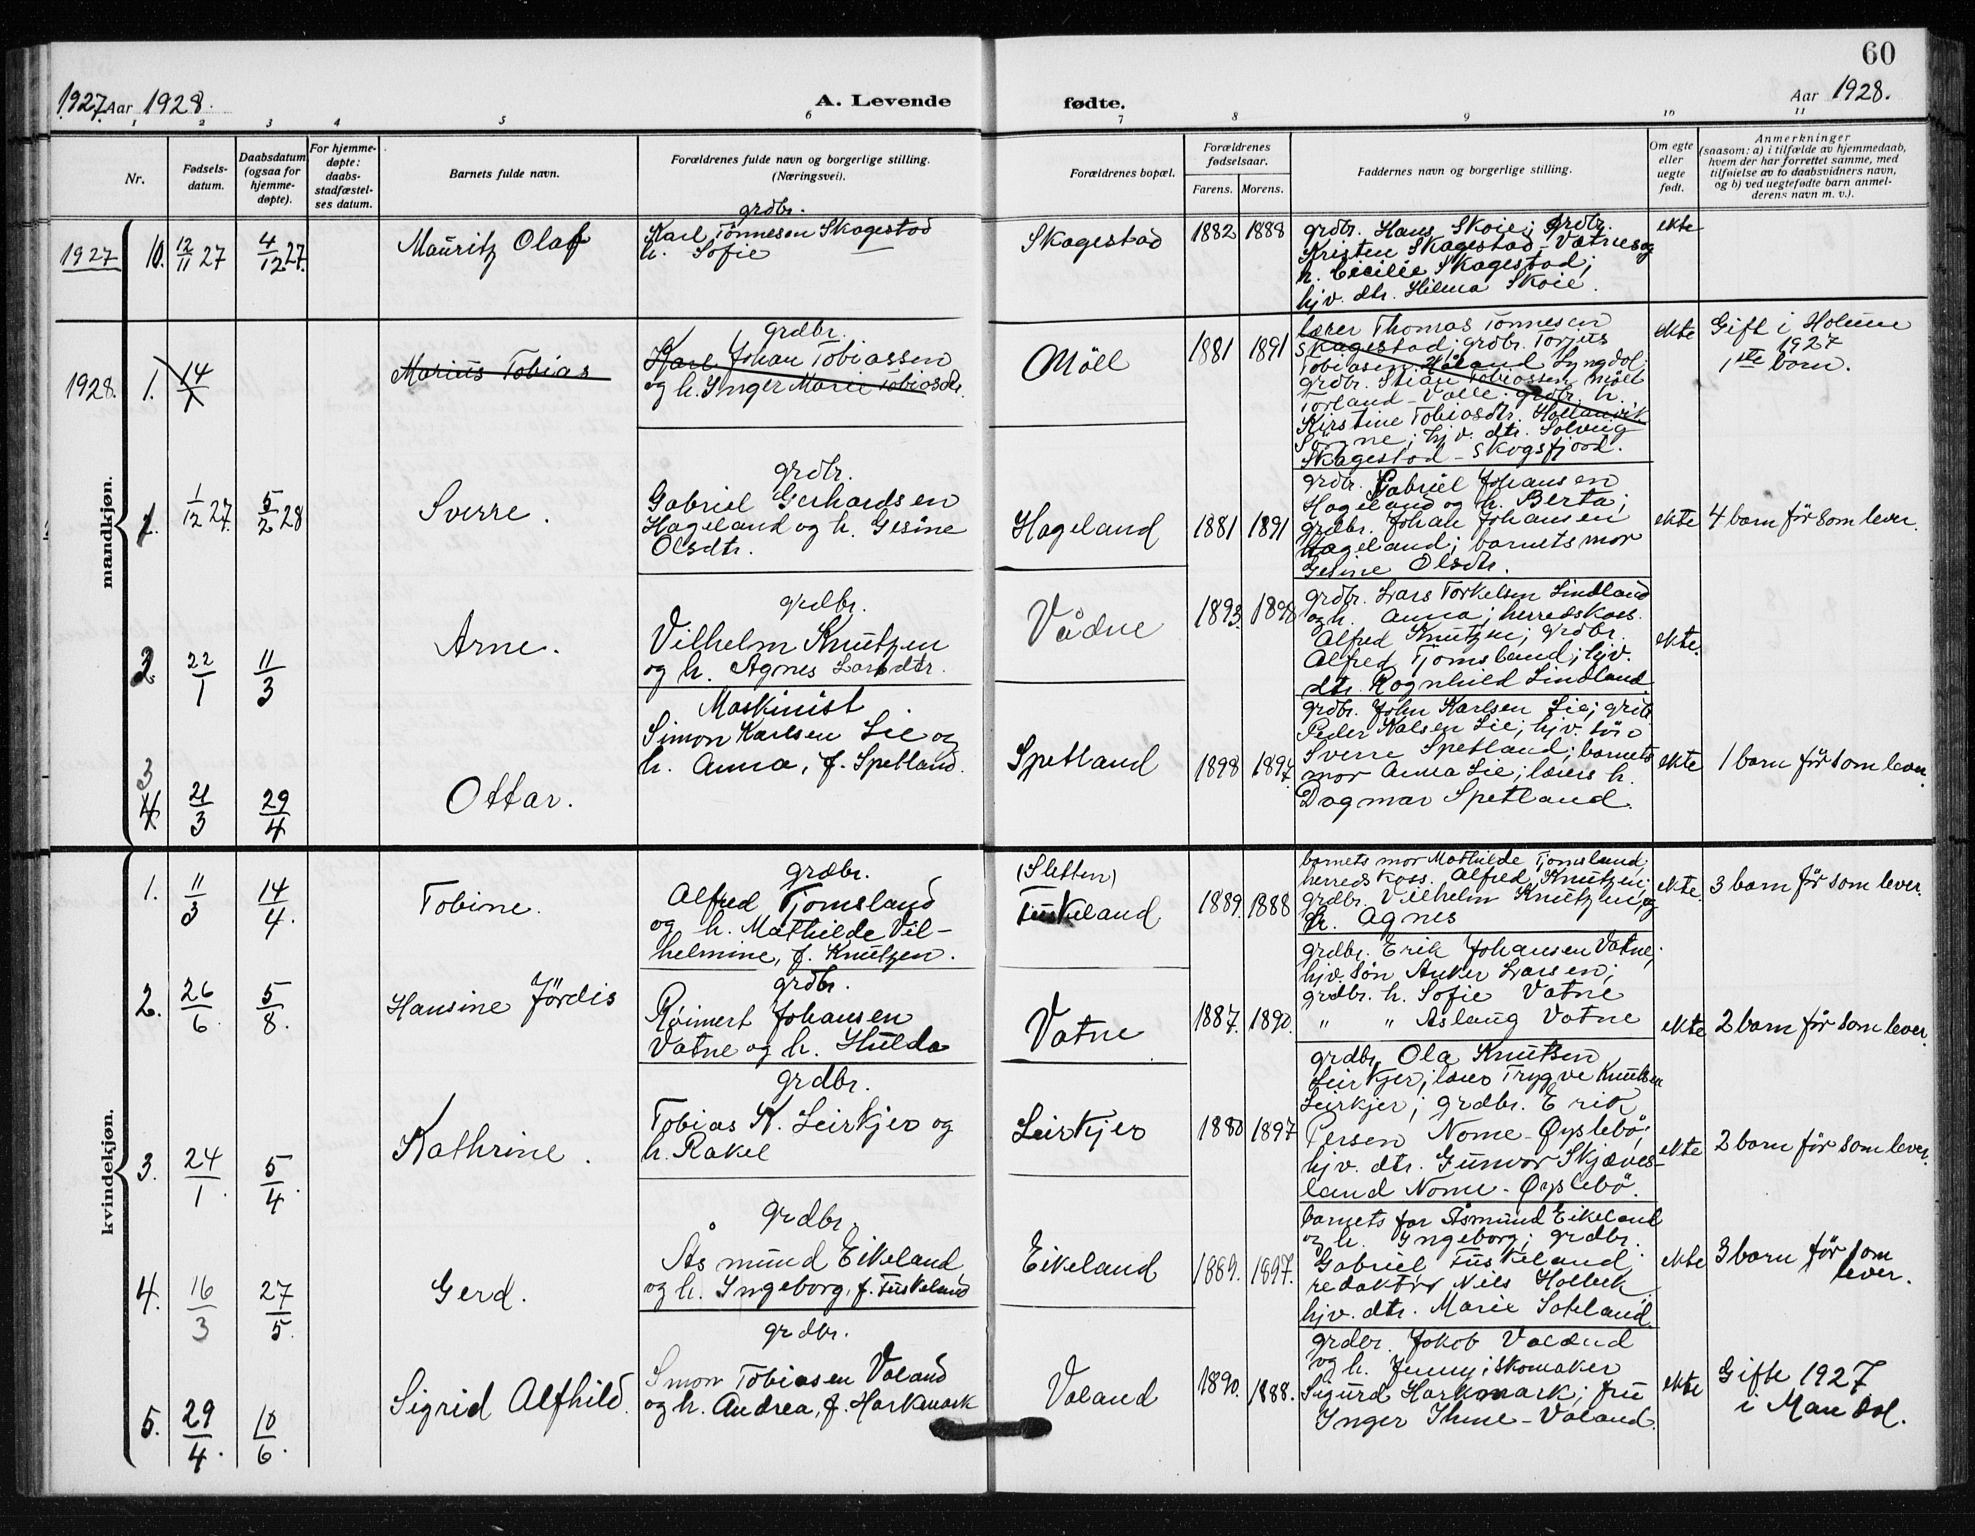 60
1927. Aar 1928.
A. Levende
fødte.
Aar 1928.
1 2 3 4 5 6 7 8 9 10 11
Nr.
Fødsels-
datum.
Daabsdatum
(ogsaa for
hjemme-
døpte).
For hjemme-
døpte:
daabs-
stadfæstel-
ses datum.
Barnets fulde navn.
Forældrenes fulde navn og borgerlige stilling.
(Næringsvei).
Forældrenes bopæl.
Forældrenes
fødselsaar.
Farens. Morens.
Faddernes navn og borgerlige stilling.
Om egte
eller
uegte
født.
Anmerkninger
(saasom: a) i tilfælde av hjemmedaab,
hvem der har forrettet samme, med
tilføielse av to daabsvidners navn,
og b) ved uegtefødte barn anmel-
derens navn m. v.).
mandkjøn.
1927
10.
12/11 27
4/12 27.
Mauritz Olaf
grdbr.
Karl Tønnesen Skagestad
h. Sofie
Skagestad
1882 1888
grdbr. Hans Skoie; grdbr.
Kristen Skagestad-Vatnes og
h. Cicilie Skagestad;
hjv. dtr. Hilma Skoie.
ekte
1928.
1.
14/1
Marius Tobias
grdbr.
Karl Johan Tobiassen
og h. Inger Marie Tobiasdtr.
Möll
1881 1891
lærer Thomas Tönnesen
Skagestad; grdbr. Torjus
Tobiasen Høland Lyngdal;
grdbr. Stian Tobiassen Möll
Torland-Valle; grdbr. h.
Kirstine Tobiasdtr. Hollenvik
Sögne; hjv. dtr. Solveig
Skagestad-Skogsfjord.
ekte
Gift i Holum
1927
1ste barn.
1.
1/12 27.
5/2 28
Sverre.
grdbr.
Gabriel Gerhardsen
Hageland og h. Gesine
Olsdtr.
Hageland
1881 1891
grdbr. Gabriel Johansen
Hageland og h. Berta;
grdbr. Johan Johansen
Hageland; barnets mor
Gesine Olsdtr.
ekte
4 barn för som lever.
2.
22/1
11/3
Arne.
grdbr.
Vilhelm Knutzen
og h. Agnes Larsdtr.
Vådne
1893. 1898
grdbr. Lars Torkelsen Lindland
og h. Anna; herredskass.
Alfred Knutzen; grdbr.
Alfred Tjomsland; hjv.
dtr. Ragnhild Lindland.
ekte.
3
4.
21/3
29/4
Ottar.
Maskinist
Simon Karlsen Lie og
h. Anna, f. Spetland.
Spetland
1898 1897.
grdbr. John Karlsen Lie; grdbr.
Peder Kalsen Lie; hjv. søn
Sverre Spetland; barnets
mor Anna Lie; lærers h.
Dagmar Spetland.
ekte
1 barn för som lever.
kvindekjøn.
1.
11/3
14/4.
Tobine.
grdbr.
Alfred Tjomsland
og h. Mathilde Vil-
helmine, f. Knutzen.
(Sletten)
Fuskeland
1889. 1888
barnets mor Mathilde Tjomsland;
herredskass. Alfred Knutzen;
grdbr. Vilhelm Knutzen, og
h. Agnes
ekte.
3 barn før som lever.
2.
26/6.
5/8.
Hansine Jördis
grdbr.
Reimert Johansen
Vatne og h. Hulda
Vatne
1887. 1890.
grdbr. Erik Johansen Vatne;
hjv. søn Anker Larsen;
grdbr. h. Sofie Vatne
" " Aslaug Vatne
ekte
2 barn før som lever.
3.
24/1.
5/4.
Kathrine.
grdbr.
Tobias K. Leirkjer og
h. Rakel
Leirkjer
1880 1897
grdbr. Ola Knutsen
Leirkjer; lærer Trygve Knutsen
Leirkjer; grdbr. Erik
Persen Nome-Øyslebø;
hjv. dtr. Gunvor Skjæves-
land Nome-Øyslebö.
ekte
2 barn før som lever.
4.
16/3
27/5.
Gerd.
grdbr.
Åsmund Eikeland
og h. Ingeborg, f. Fuskeland
Eikeland
1889. 1897.
barnets far Åsmund Eikeland
og h. Ingeborg; grdbr.
Gabriel Fuskeland;
redaktør Nils Holbek
hjv. dtr. Marie Sökland.
ekte
3 barn før som
lever.
5.
29/4.
10/6.
Sigrid Alfhild.
grdbr.
Simon Tobiasen Valand
og h. Andrea, f. Harkmark
Valand
1890. 1888.
grdbr. Jakob Valand
og h. Jenny; skomaker
Sigurd Harkmark; fru
Inger Ihme-Valand.
ekte
Gifte 1927
i Mandal.